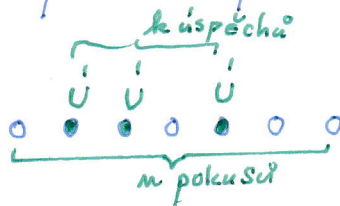 k úspěchů
Ú Ú Ú
n pokusů